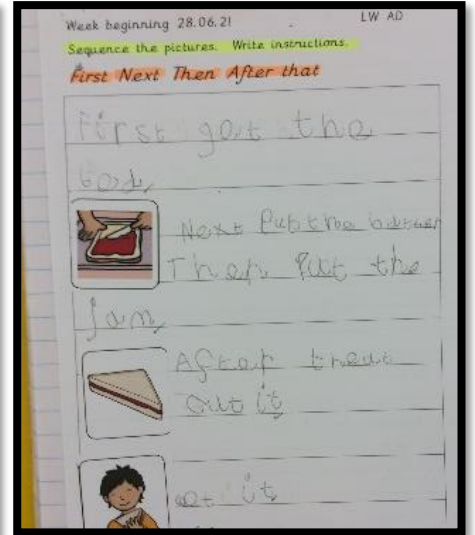 Week beginning 28.06.21
LW AD
Sequence the pictures. Write instructions.
First Next Then After that
First get the
Next Put the
Then Put the
Jam
After
cut it
it